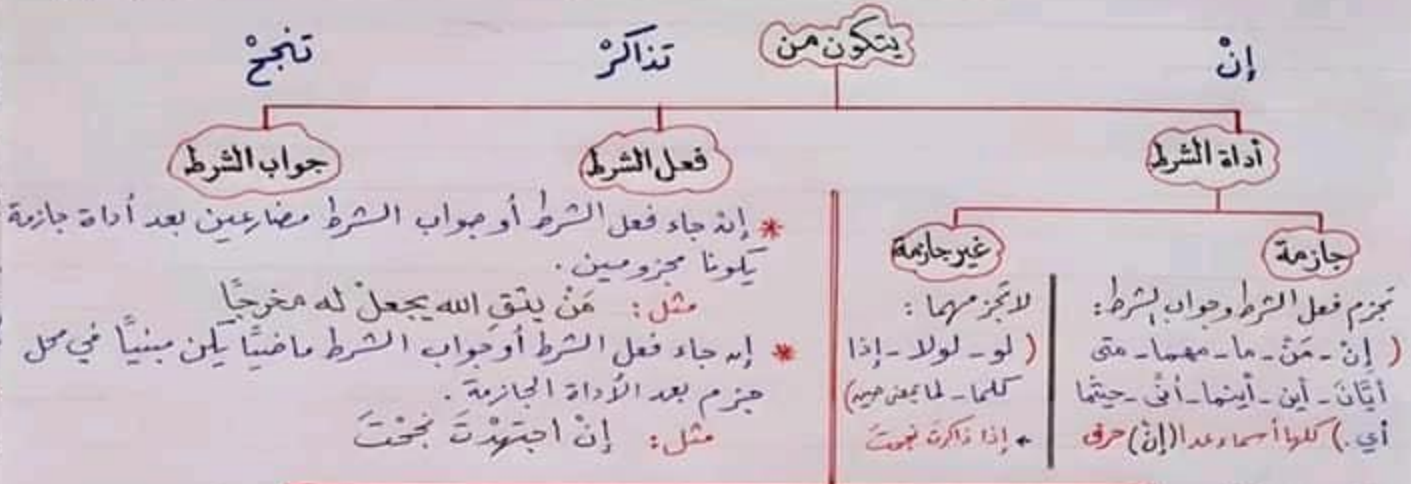 يتكون من
إنْ تذاكرْ تنجحْ
أداة الشرط فعل الشرط جواب الشرط
جازمة غير جازمة
تجزم فعل الشرط وجواب الشرط:
( إنْ - مَنْ - ما - مهما - متى
أيَّانَ - أين - أينما - أنَّى - حيثما
أي .) كلها أسماء عدا (إنْ) حرف
لا تجزمهما :
( لو - لولا - إذا
كلما - لما بمعنى حين)
← إذا ذاكرت نجحت
* إن جاء فعل الشرط أو جواب الشرط مضارعين بعد أداة جازمة
يكونا مجزومين .
مثل : مَنْ يتق الله يجعلْ له مخرجًا
* إن جاء فعل الشرط أو جواب الشرط ماضيًا يكن مبنيًّا في محل
جزم بعد الأداة الجازمة .
مثل : إنْ اجتهدْتَ نجحْتَ